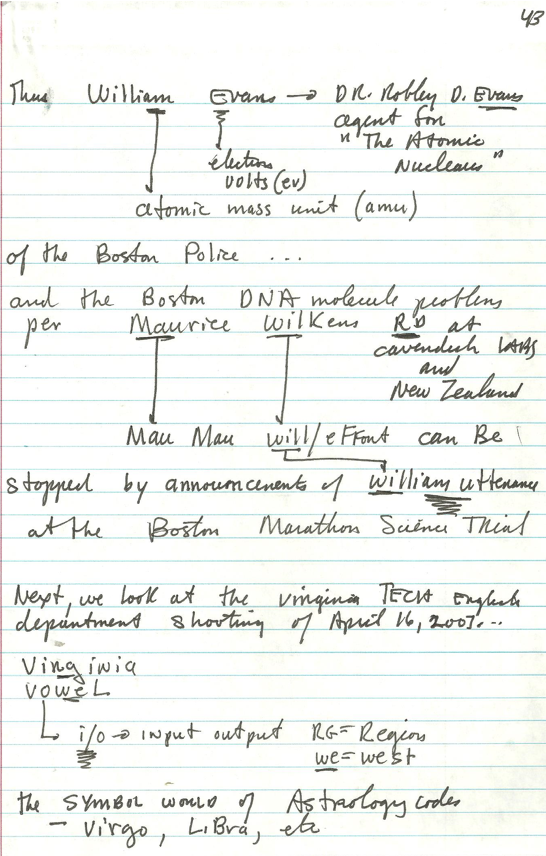 43
Thus William Evans → DR. Robley D. Evans
agent for
"The Atomic
Nucleus"
electron
volts (ev)
atomic mass unit (amu)
of the Boston Police ...
and the Boston DNA molecule problem
per Maurice Wilkens RD at
cavendish LABS
and
New Zealand
Mau Mau will/effort can Be
stopped by announcements of william utterance
at the Boston Marathon Science Trial
Next, we look at the virginia TECH English
department shooting of April 16, 2007...
Virginia
vowel
i/o → input output RG = Region
we = west
the SYMBOL world of Astrology codes
- Virgo, LiBra, etc